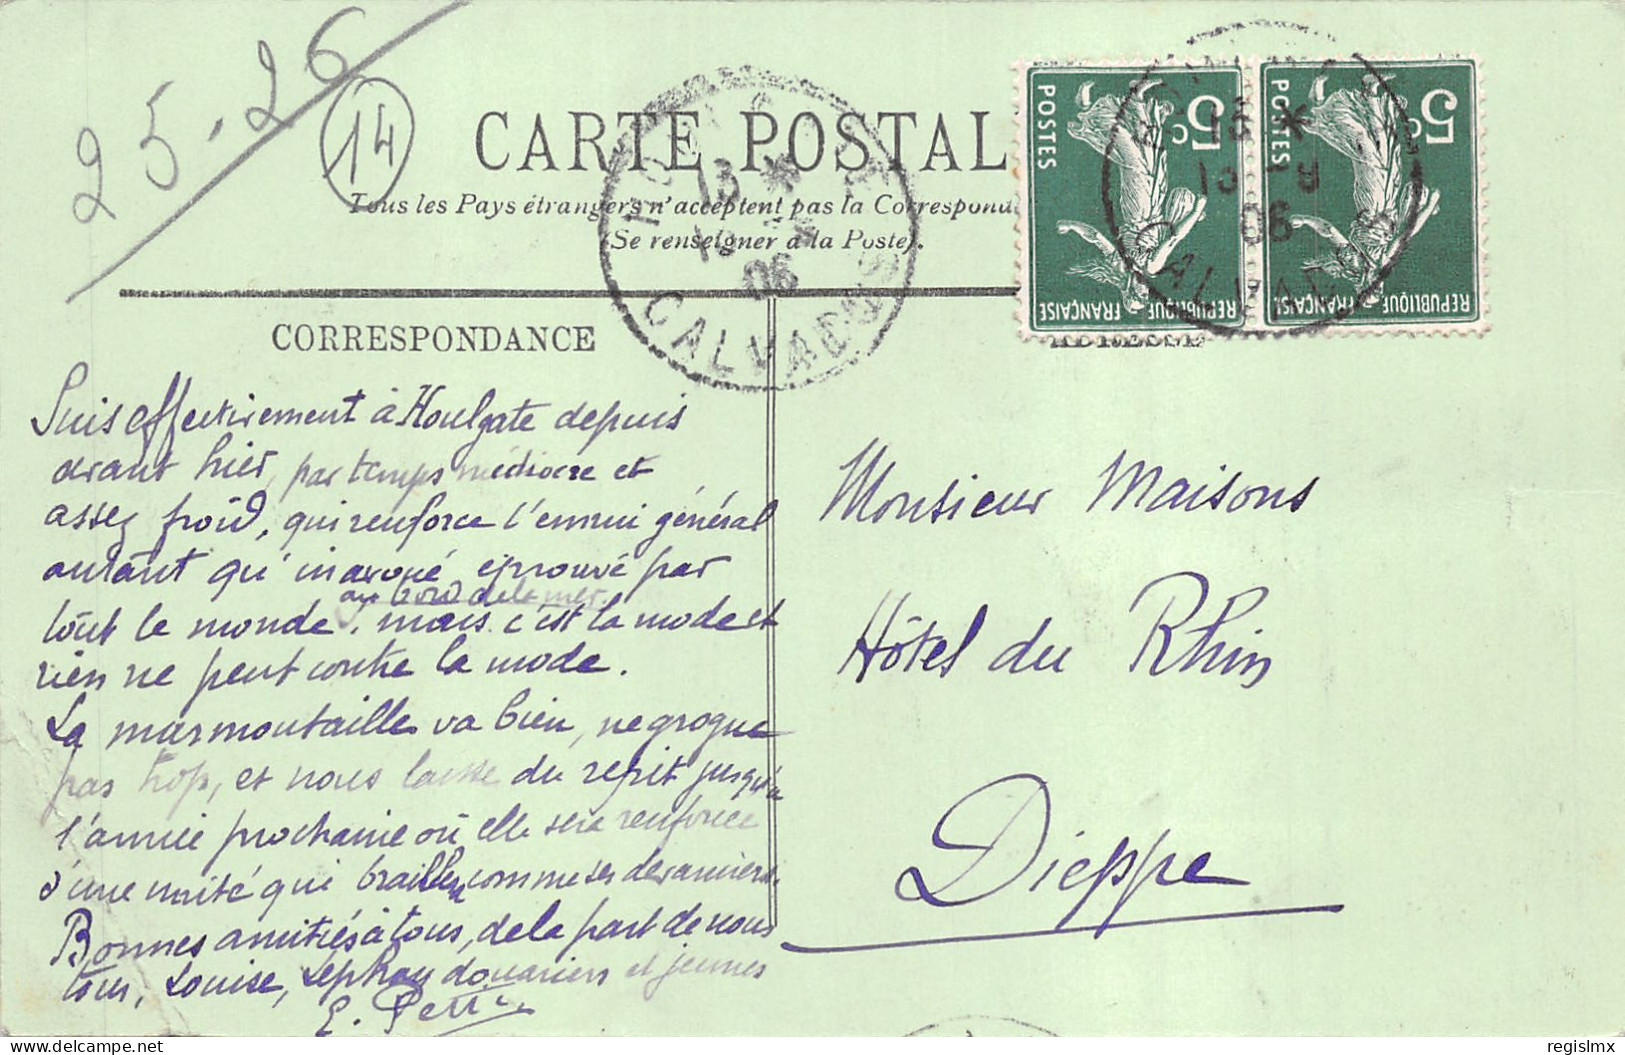 25-26
14
CARTE POSTAL
Tous les Pays étrangers n'acceptent pas la Correspond
(Se renseigner à la Poste).
13 *
13
06
CALVADOS
POSTES
5c
REPUBLIQUE FRANÇAISE
POSTES
5c
REPUBLIQUE FRANÇAISE
13 *
13 -9
06
CALVADOS
CORRESPONDANCE
Suis effectivement à Houlgate depuis
avant hier, par temps médiocre et
assez froid, qui renforce l'ennui général
autant qu'inavoué éprouvé par
tout le monde au bord de la mer. mais c'est la mode et
rien ne peut contre la mode.
La marmoutaille va bien, ne grogne
pas trop, et nous laisse du répit jusqu'à
l'année prochaine où elle sera renforcée
d'une unité qui braillera comme ses devanciers.
Bonnes amitiés à tous, de la part de nous
tous, Louise, et jeunes
E.
Monsieur Maisons
Hôtel du Rhin
Dieppe
regislmx
delcampe.net